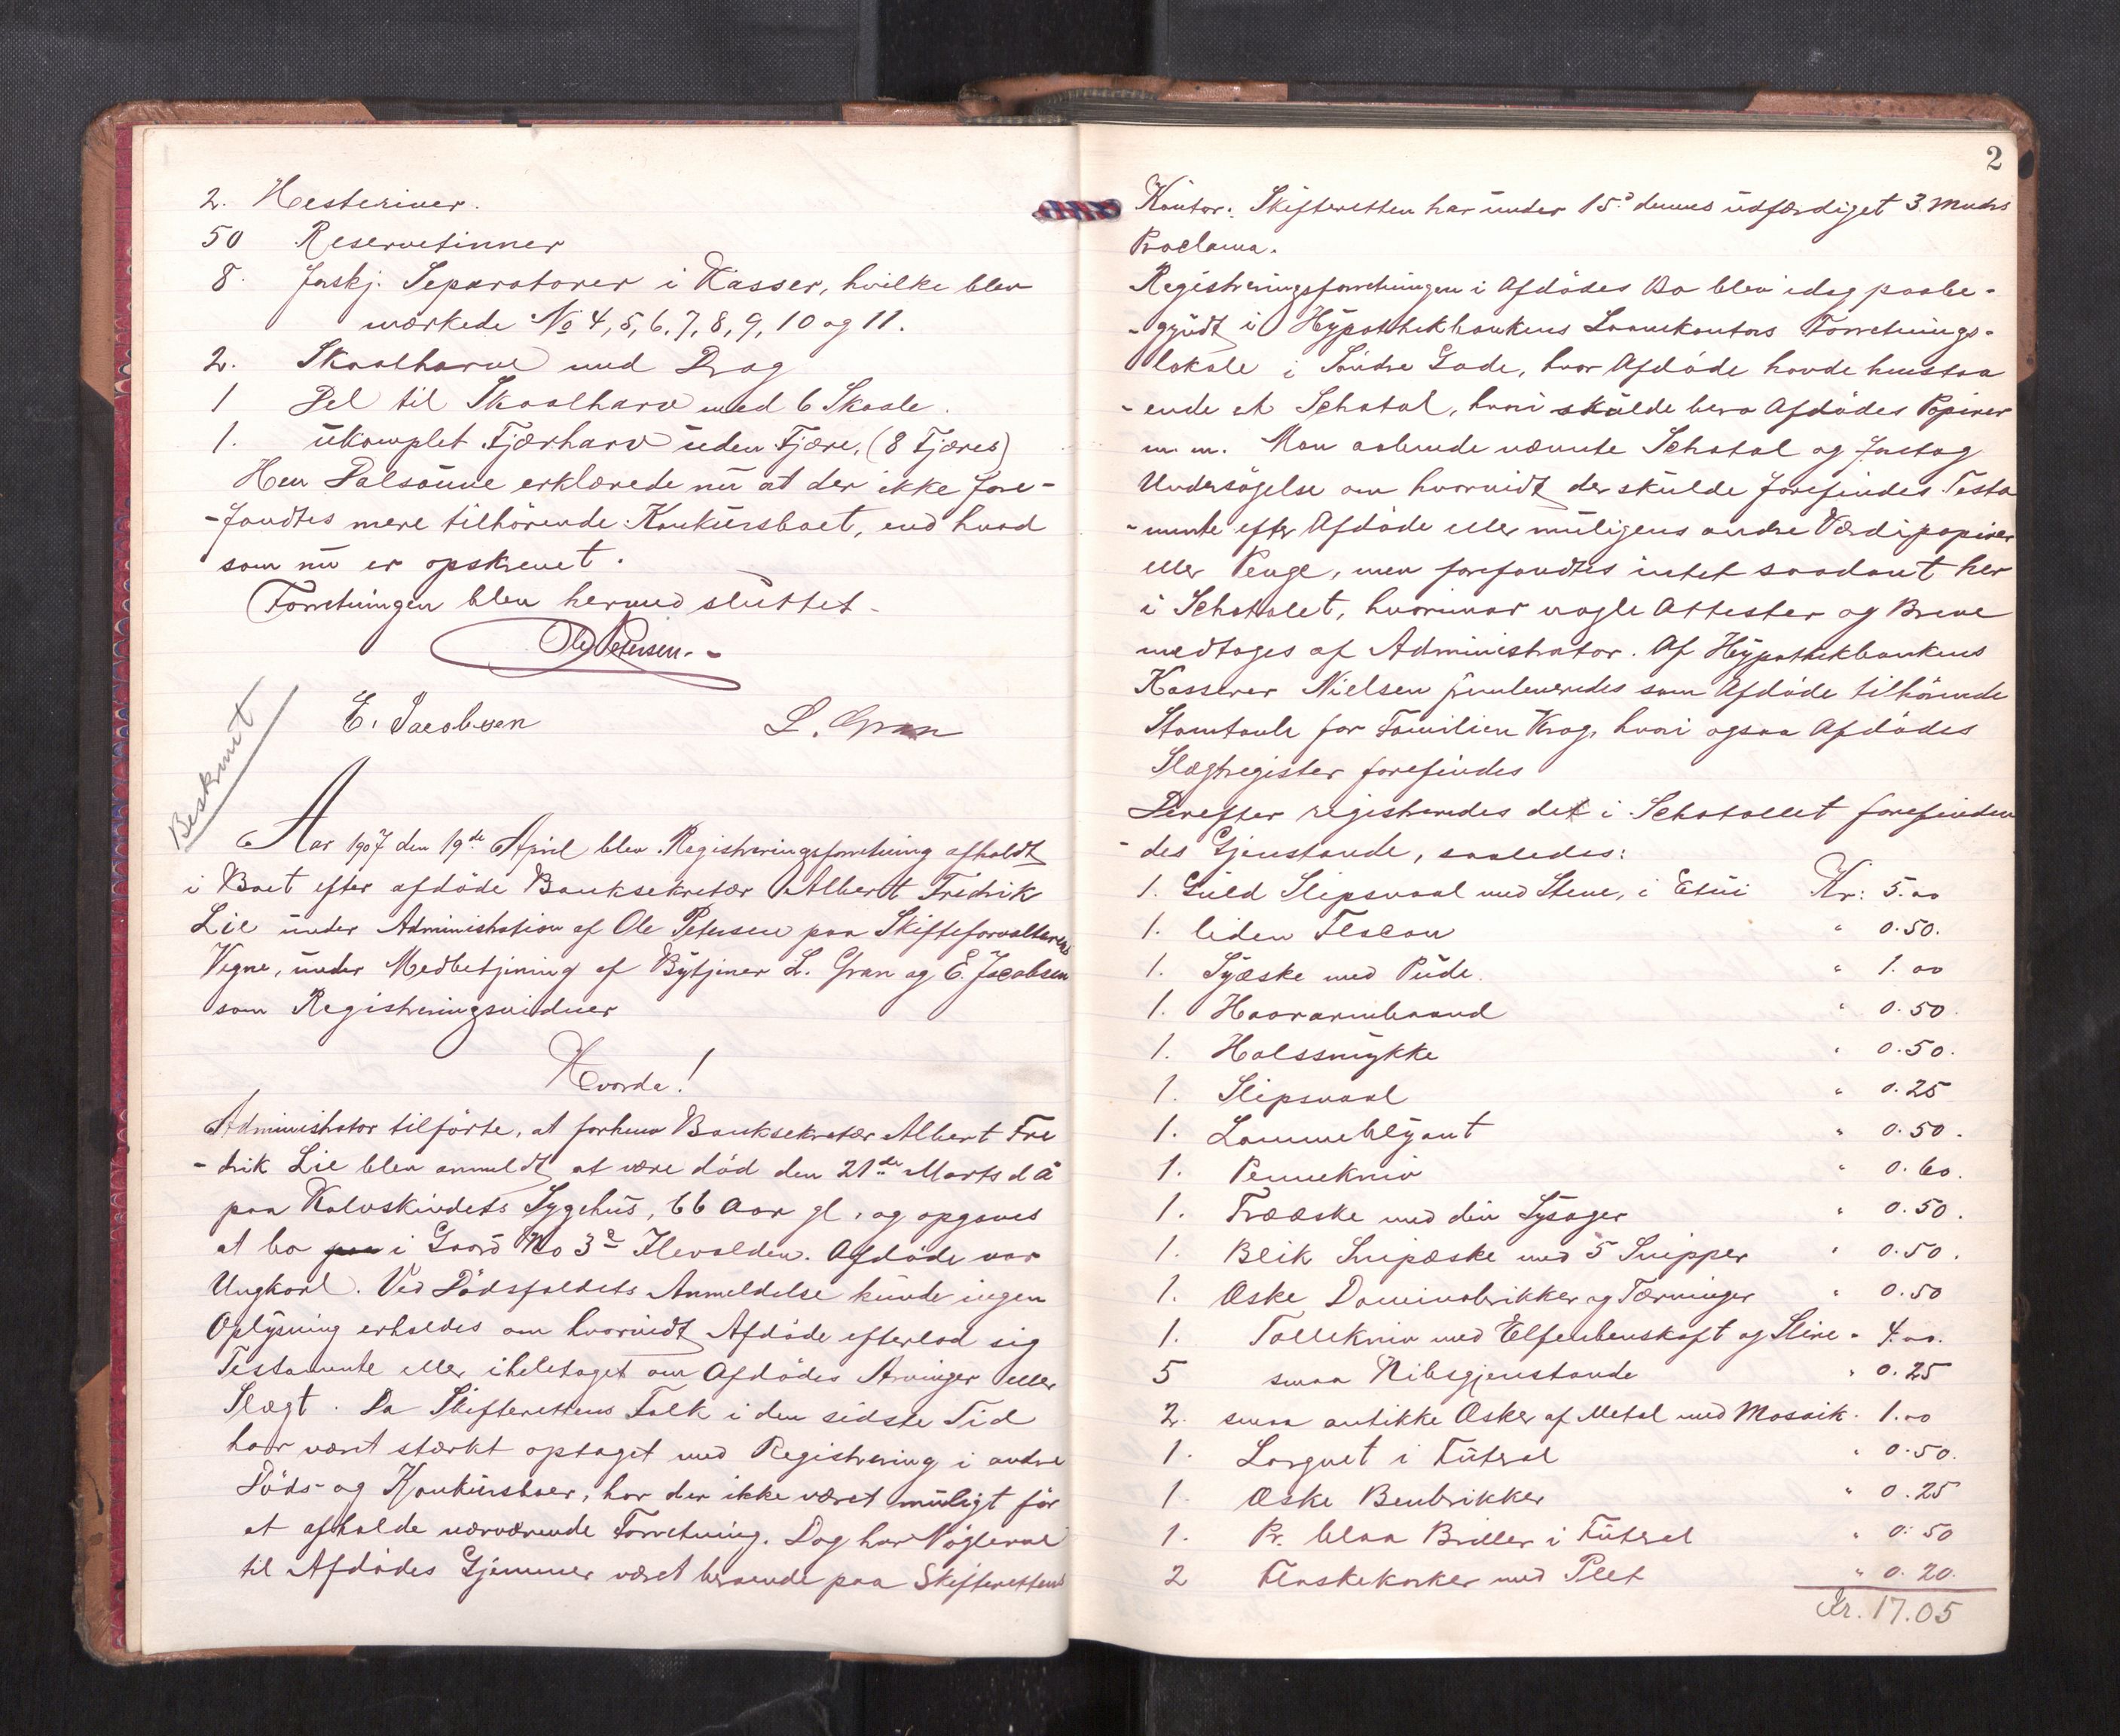 2. Hesteriver.
50 Reservetinner
8. forskj. Separatorer i Kasser, hvilke blev
mærkede No 4, 5, 6, 7, 8, 9, 10 og 11.
2. Skaalharve med Drag
1 Del til Skaalharv med 6 Skaale.
1. ukomplet Fjærharv uden Fjære, (8 Fjæres)
Herr Dalsaune erklærede nu at der ikke fore-
-fandtes mere tilhørende Konkursboet, end hvad
som nu er opskrevet.
Forretningen blev hermed sluttet.
Ole Petersen.
E. Jacobsen L. Gran
Beskrevet
Aar 1907 den 19de April blev Registreringsforretning afholdt
i Boet efter afdøde Banksekretær Albert Fredrik
Lie under Administration af Ole Petersen paa Skifteforvalterens
Vegne, under Medbetjening af Bytjener L. Gran og E. Jacobsen
som Registreringsvidner
Hvorda!
Administrator tilførte, at forhenv Banksekretær Albert Fre
-drik Lie blev anmeldt at være død den 21de Marts d A
paa Kalvskindets Sygehus, 66 Aar gl. og opgaves
at bo paa i Gaard No 3 Ilevolden. Afdøde var
Ungkarl. Ved Dødsfaldets Anmeldelse kunde ingen
Oplysning erholdes om hvorvidt Afdøde efterlod sig
Testamente eller iheletaget om Afdødes Arvinger eller
Slægt. Da Skifterettens Folk i den sidste Tid
har været stærkt optaget med Registrering i andre
Døds- og Konkursboer, har der ikke været muligt før
at afholde nærværende Forretning. Dog har Nøglerne
til Afdødes Gjemmer været beroende paa Skifterettens
2
Kontor. Skifteretten har under 15d dennes udfærdiget 3 Mnds
Proclama.
Registreringsforretningen i Afdødes Bo blev idag paabe-
-gyndt i Hypothekbankens Laanekontors Forretnings-
lokale i Søndre Gade, hvor Afdøde havde henstaa
-ende et Schatol, hvori skulde bero Afdødes Papirer
m. m. Man aabnede nævnte Schatol og foretog
Undersøgelse om hvorvidt der skulde forefindes Testa
-mente efter Afdøde eller muligens andre Værdipapirer
eller Penge, men forefandtes intet saadant her
i Schatolet, hvorimod nogle Attester og Breve
medtoges af Administrator. Af Hypothekbankens
Kasserer Nielsen fremleveredes som Afdøde tilhørende
Stamtavle for Familien Krog, hvori ogsaa Afdødes
Slægtregister forefindes
Derefter registreredes det i Schatollet forefinden
-des Gjenstande, saaledes:
1. Guld Slipsnaal med Stene, i Etui Kr: 5.00
1. liden Flacon " 0.50.
1. Syæske med Pude. " 1.00
1. Haararmbaand " 0.50.
1. Halssmykke " 0.50.
1. Slipsnaal " 0.25
1. Lommeblyant " 0.50.
1. Pennekniv " 0.60.
1. Trææske med div Sysager " 0.50.
1. Blik Snipæske med 5 Snipper " 0.50.
1. Æske Dominobrikker og Tærninger " 0.50
1. Tollekniv med Elfenbenskaft og Slire " 4.00.
5 smaa Nibsgjenstande " 0.25
2. smaa antikke Æsker af Metal med Mosaik. 1.00
1. Lorgnet i Futeral " 0.50.
1. Æske Benbrikker " 0.25
1. Pr. blaa Briller i Futeral " 0.50
2 Flaskekorker med Plet " 0.20.
Kr. 17.05